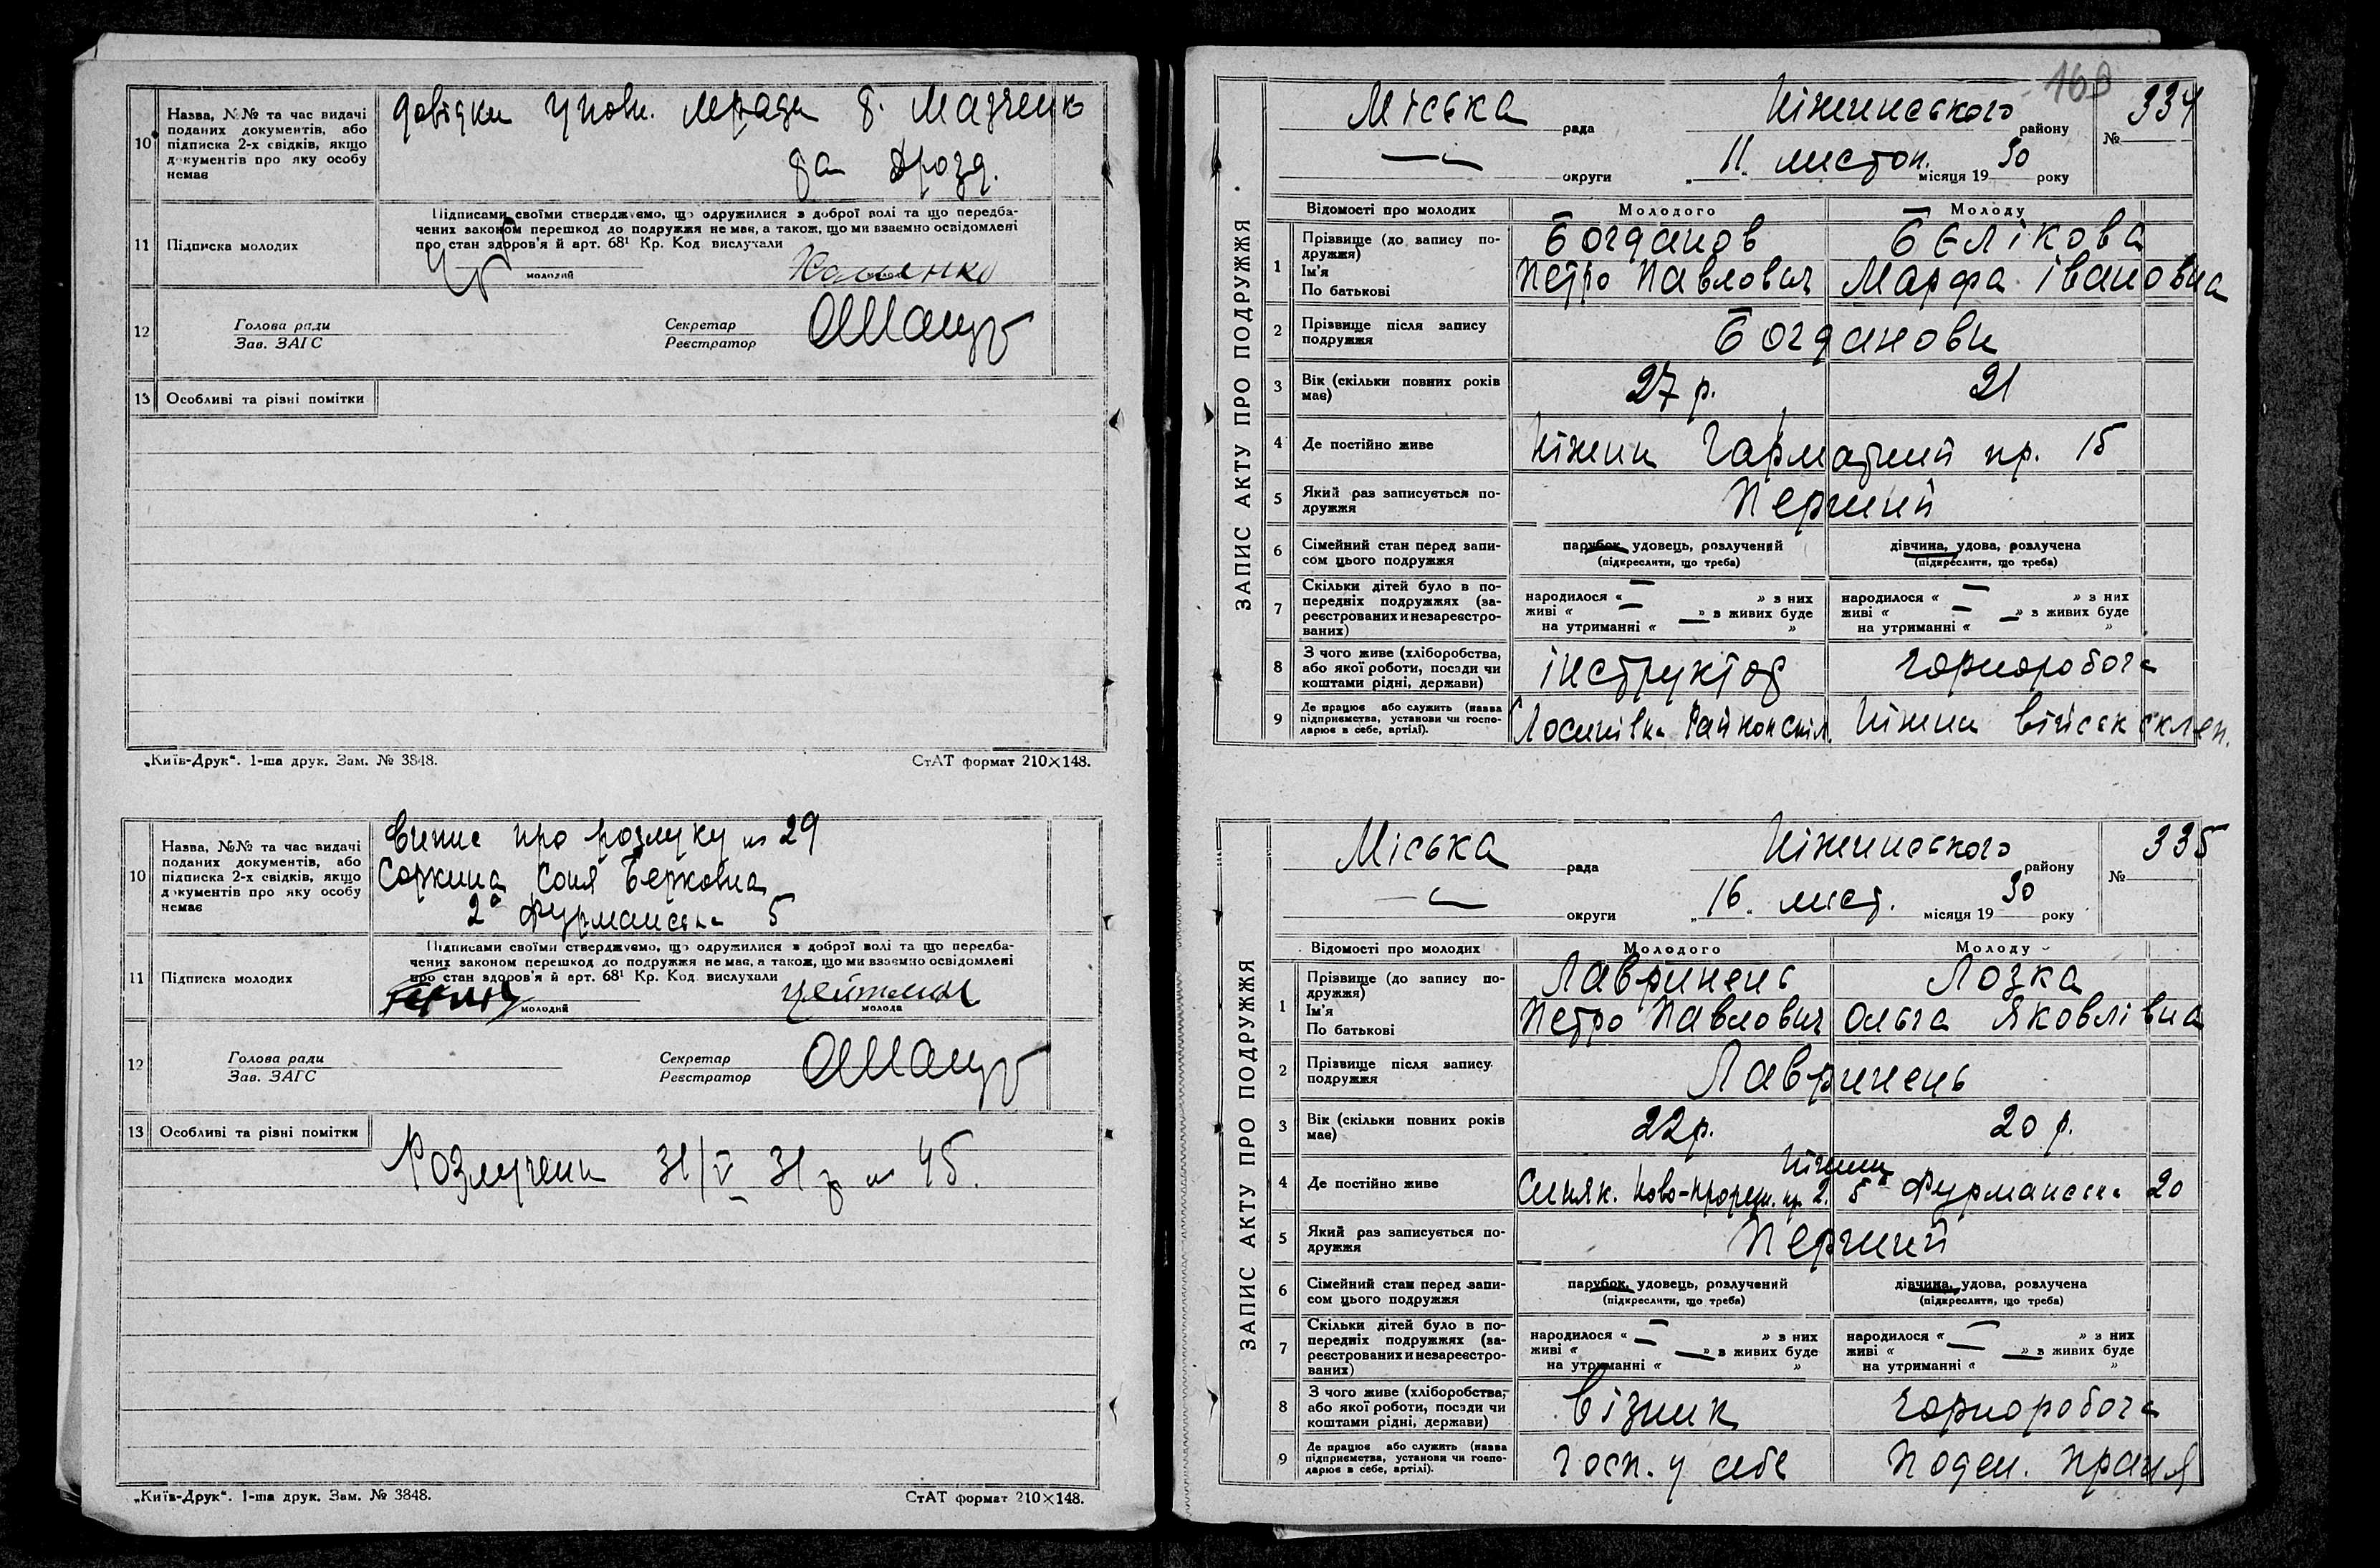 10 Назва, №№ та час видачі
поданих документів, або
підписка 2-х свідків, якщо
документів про яку особу
немає
довідки уповн. міради 8. Мазченко
8а Дрозд.
Підписами своїми стверджуємо, що одружилися з доброї волі та що передба-
чених законом перешкод до подружжя не має, а також, що ми взаємно освідомлені
про стан здоров'я й арт. 68¹ Кр. Код вислухали
11 Підписка молодих
молодий
12 Голова ради
Зав. ЗАГС
Секретар
Реєстратор
13 Особливі та різні помітки
„Київ-Друк“. 1-ша друк. Зам. № 3848.
СтАТ формат 210×148.
10 Назва, №№ та час видачі
поданих документів, або
підписка 2-х свідків, якщо
документів про яку особу
немає
Випис про розлуку № 29
Соркина Соня Берковна
2а Фурманська 5
Підписами своїми стверджуємо, що одружилися з доброї волі та що передба-
чених законом перешкод до подружжя не має, а також, що ми взаємно освідомлені
про стан здоров'я й арт. 68¹ Кр. Код вислухали
11 Підписка молодих
молодий
Цейтлин
молода
12 Голова ради
Зав. ЗАГС
Секретар
Реєстратор
13 Особливі та різні помітки
Розлучени 31/V 31 р № 45.
„Київ-Друк“. 1-ша друк. Зам. № 3848.
СтАТ формат 210×148.
169
ЗАПИС АКТУ ПРО ПОДРУЖЖЯ
Міська рада Ніжинського району № 334
округи „11“ листоп. місяця 1930 року
Відомості про молодих Молодого Молоду
1 Прізвище (до запису по-
дружжя)
Ім'я
По батькові
Богданов Бєлікова
Петро Павлович Марфа Івановна
2 Прізвище після запису
подружжя
Богданови
3 Вік (скільки повних років
має)
27 р. 21
4 Де постійно живе
Ніжин Гарматний пр. 15
5 Який раз записується по-
дружжя
Перший
6 Сімейний стан перед запи-
сом цього подружжя
парубок, удовець, розлучений
(підкреслити, що треба)
дівчина, удова, розлучена
(підкреслити, що треба)
7 Скільки дітей було в по-
передніх подружжях (за-
реєстрованих и незареєстро-
ваних)
народилося « » з них
живі « » з живих буде
на утриманні « »
народилося « » з них
живі « » з живих буде
на утриманні « »
8 З чого живе (хліборобства,
або якої роботи, посади чи
коштами рідні, держави)
інструктор чорноробоча
9 Де працює або служить (назва
підприємства, установи чи госпо-
дарює в себе, артілі).
Лосинівка Райконспіл. Ніжин Військ склеп.
ЗАПИС АКТУ ПРО ПОДРУЖЖЯ
Міська рада Ніжинського району № 335
округи „16“ лист. місяця 1930 року
Відомості про молодих Молодого Молоду
1 Прізвище (до запису по-
дружжя)
Ім'я
По батькові
Лавринець Лозка
Петро Павлович Ольга Яковлівна
2 Прізвище після запису
подружжя
Лавринець
3 Вік (скільки повних років
має)
22 р. 20 р.
4 Де постійно живе
Ніжин
Синяк. Ново-прорез. пр. 2. 5 Фурманська 20
5 Який раз записується по-
дружжя
Перший
6 Сімейний стан перед запи-
сом цього подружжя
парубок, удовець, розлучений
(підкреслити, що треба)
дівчина, удова, розлучена
(підкреслити, що треба)
7 Скільки дітей було в по-
передніх подружжях (за-
реєстрованих и незареєстро-
ваних)
народилося « » з них
живі « » з живих буде
на утриманні « »
народилося « » з них
живі « » з живих буде
на утриманні « »
8 З чого живе (хліборобства,
або якої роботи, посади чи
коштами рідні, держави)
Візник чорноробоча
9 Де працює або служить (назва
підприємства, установи чи госпо-
дарює в себе, артілі).
Госп. у себе Поден. праця